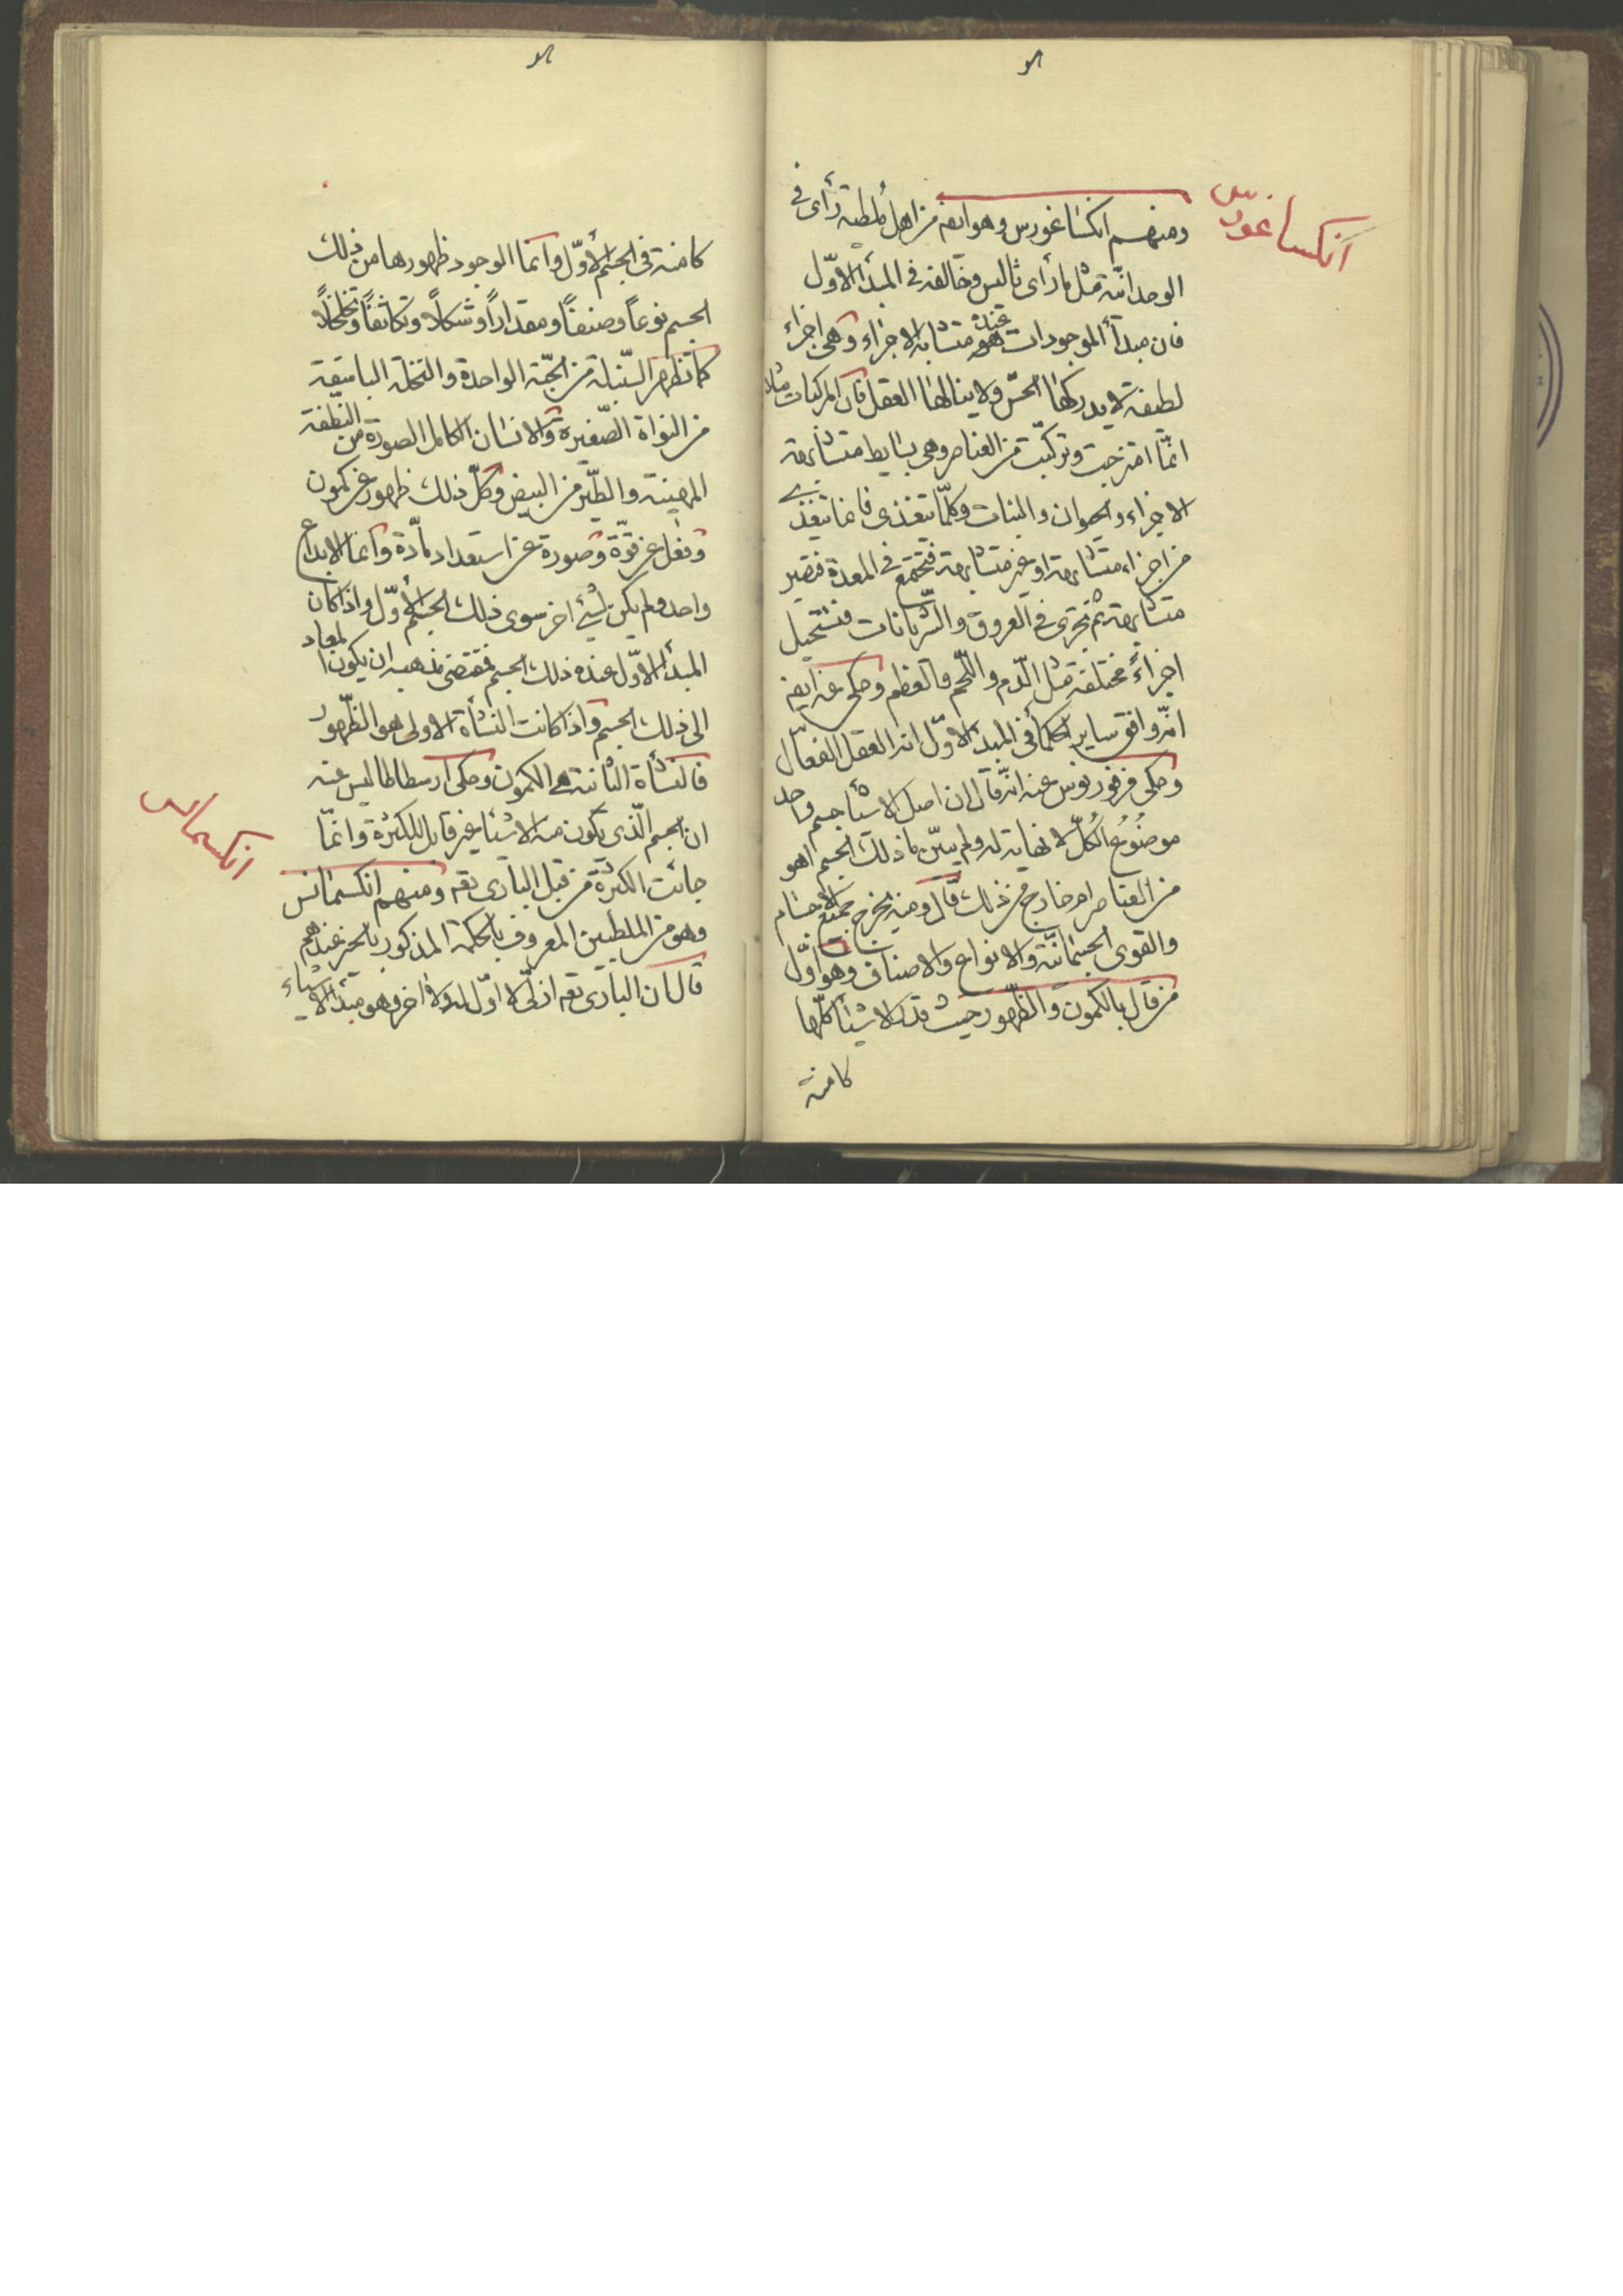 انكساغورس
ومنهم انكساغورس وهو ايضه من اهل ملطيه رأى فى
الوحدانيّة مثل ما رأى ثاليس وخالفه فى المبدأ الاوّل
فان مبدأ الموجودات عنده هو متشابه الاجزاء وهى اجزاء
لطيفة لا يدركها الحسّ ولا ينالها العقل فان المركبات مثلا
انمّا امتزجت وتركبّت من العناصر وهى بسايط متشابهة
الاجزاء والحيوان والنبات وكلمّا تتغذى فانما تتغذى
من اجزاء متشابهة او غير متشابهة فتجتمع فى المعدة فتصير
متشابهة ثم تجرى فى العروق والشّريانات فتستحيل
اجزاءً مختلفة مثل الدّم واللّحم والعظم وحكى عنه ايضه
انّه وافق ساير الحكمأ فى المبدأ الاوّل انه العقل الفعّال
وحكى فرفوريوس عنه انّه قال ان اصل الاشيأ جسم واحد
موضُوعُ الكُلّ لا نهاية له ولم يبيّن ما ذلك الجسم اهو
من العناصر ام خارج من ذلك قال ومنه يخرج جميع الاجسام
والقوى الجسمانيّة والانواع والاصناف وهو اوّل
من قال بالكمون والظّهور حيث قدّر الاشيأ كلّها
كامنة
كامنة فى الجسم الأوّل وانمّا الوجود ظهورها من ذلك
الجسم نوعاً وصنفاً ومقداراً وشكلاً وتكاثفاً وتخلخلاً
كما تظهر السّنبلة من الحبّة الواحدة والنخلة الباسقة
من النواة الصّغيرة والانسان الكامل الصورة من النطفة
المهينة والطّير من البيض وكلّ ذلك ظهور عن كمون
وفعل عن قوّة وصورة عن استعداد مادّة وانما الابداع
واحد ولم يكن لشئ اخر سوى ذلك الجسم الأوّل واذا كان
المبدأ الاوّل عنده ذلك الجسم فمقتضى مذهبه ان يكون المعاد
الى ذلك الجسم واذا كانت النشأة الاولى هو الظّهور
فالنشأة الثانية هى الكمون وحكى ارسطاطاليس عنه
ان الجسم الّذى تكون منه الاشيأ غير قابل للكثرة وانمّا
جائت الكثرة من قبل البارى تعه ومنهم انكسمانس
انكسمانس
وهو من الملطيين المعروف بالحكمة المذكور بالخير عندهم
قال ان البارى تعه ازلىّ لا اوّل له ولا اخر وهو مبدأ الاشياء